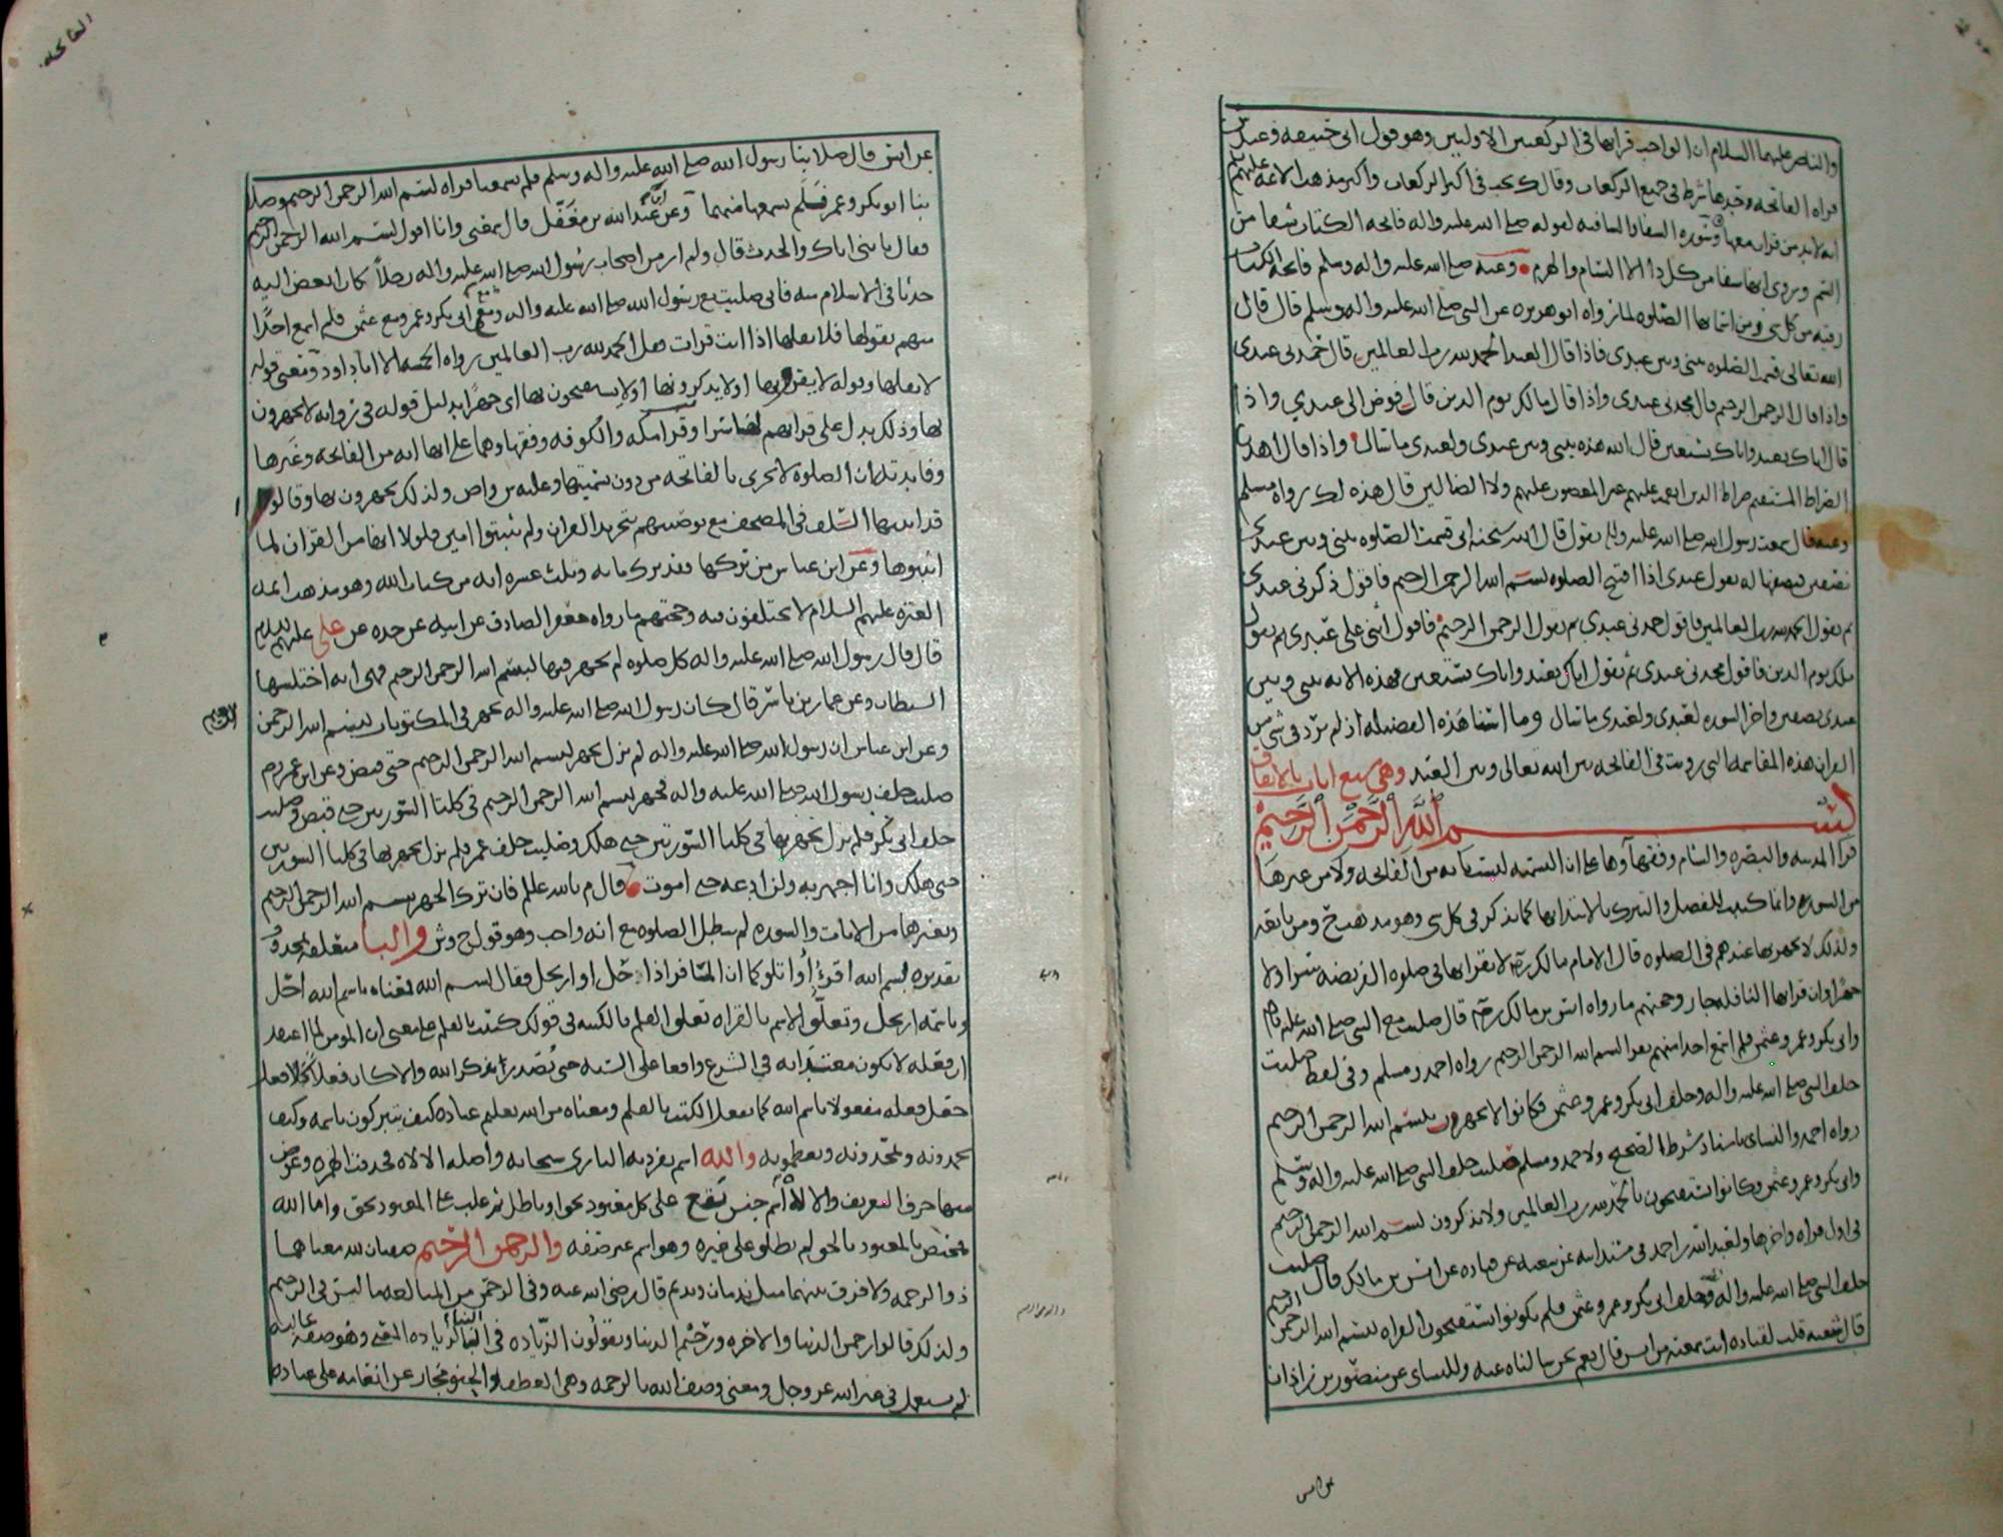 والناصر عليهما السلام ان الواجب قرابها في الركعتين الاوليين وهو قول ابي حنيفه وعند ش
قراه الفاتحه وحدها شرط في جميع الركعات وقال ك يجب في اكثر الركعات واكثر مذهب الائمه عليهم السلم
انه لابد من قران معها وسوره الشفا والشافيه لقوله صلى الله عليه واله فاتحه الكتاب شفا من
السم ويروى انها شفا من كل دا الا السام والهرم وعنه صلى الله عليه واله وسلم فاتحه الكتاب
رقيه من كل شي ومن اسمايها الصلوه لما رواه ابو هريره عن النبي صلى الله عليه واله وسلم قال قال
الله تعالى قسمت الصلوه بيني وبين عبدي فاذا قال العبد الحمد لله رب العالمين قال حمدني عبدي
واذا قال الرحمن الرحيم قال مجدني عبدي واذا قال مالك يوم الدين قال فوض الي عبدي واذا
قال اياك نعبد واياك نستعين قال الله هذه بيني وبين عبدي ولعبدي ما سال واذا قال اهدنا
الصراط المستقيم صراط الذين انعمت عليهم غير المغضوب عليهم ولا الضالين قال هذه لك رواه مسلم
وعنه قال سمعت رسول الله صلى الله عليه واله يقول قال الله سبحانه اني قسمت الصلوه بيني وبين عبدي
نصفين فنصفها له يقول عبدي اذا افتتح الصلوه بسم الله الرحمن الرحيم فاقول ذكرني عبدي
ثم يقول الحمد لله رب العالمين فاقول حمدني عبدي ثم يقول الرحمن الرحيم فاقول اثنى علي عبدي ثم يقول
ملك يوم الدين فاقول مجدني عبدي ثم يقول اياك نعبد واياك نستعين فهذه الايه بيني وبين
عبدي نصفين واخر السوره لعبدي ولعبدي ما سال وما اسنا هذه الفضيله اذ لم ترد في شي من
القران هذه المقاسمه التي رويت في الفاتحه بين الله تعالى وبين العبد وهي سبع ايات بالاتفاق
بسم الله الرحمن الرحيم
قرا المدينه والبصره والشام وفقهاوها على ان التسميه ليست بايه من الفاتحه ولا من غيرها
من السور وانما كتبت للفصل والتبرك بالابتدا بها كما تذكر في كل شي وهو مذهب ح ومن تابعه
ولذلك لا يجهر بها عندهم في الصلوه قال الامام مالك لا يقرا بها في صلوه الفريضه سرا ولا
جهرا وان قرا بها النافله جاز وحجتهم ما رواه انس بن مالك قال صليت مع النبي صلى الله عليه واله
وابي بكر وعمر وعثمن فلم اسمع احدا منهم يقرا بسم الله الرحمن الرحيم رواه احمد ومسلم وفي لفظ صليت
خلف النبي صلى الله عليه واله وخلف ابي بكر وعمر وعثمن فكانوا لا يجهرون ببسم الله الرحمن الرحيم
رواه احمد والنساي باسناد شرط الصحيح ولاحمد ومسلم صليت خلف النبي صلى الله عليه واله وسلم
وابي بكر وعمر وعثمن وكانوا يستفتحون بالحمد لله رب العالمين ولا يذكرون بسم الله الرحمن الرحيم
في اول قراه واخرها ولعبد الله بن احمد في مسند ابيه عن شعبه عن قتاده عن انس بن مالك قال صليت
خلف النبي صلى الله عليه واله وخلف ابي بكر وعمر وعثمن فلم يكونوا يستفتحون القراه ببسم الله الرحمن الرحيم
قال شعبه قلت لقتاده انت سمعته من انس قال نعم نحن سالناه عنه وللنساي عن منصور بن زاذان
عن انس
الفاتحه
عن انس قال صلا بنا رسول الله صلى الله عليه واله وسلم فلم يسمعنا قراه بسم الله الرحمن الرحيم وصلا
بنا ابو بكر وعمر فلم نسمعها منهما وعن ابن عبد الله بن مغفل قال سمعني وانا اقول بسم الله الرحمن الرحيم
فقال يا بني اياك والحدث قال ولم ار من اصحاب رسول الله صلى الله عليه واله رجلا كان ابغض اليه
حدثا في الاسلام منه فاني صليت مع رسول الله صلى الله عليه واله ومع ابي بكر وعمر ومع عثمن فلم اسمع احدا
منهم يقولها فلا تقلها اذا انت قرات فقل الحمد لله رب العالمين رواه الخمسه الا ابا داود ومعنى قوله
لا تقلها وقوله لا يقرونها او لا يذكرونها او لا يستفتحون بها اي جهرا بدليل قوله في روايه لا يجهرون
بها وذلك يدل على قراتهم لها سرا وقرا مكه والكوفه وفقهاوهما على انها ايه من الفاتحه وغيرها
وفايدته ان الصلوه لا تجزي بالفاتحه من دون تسميتها وعليه ش واص ولذلك يجهرون بها وقالوا
قد اثبتها السلف في المصحف مع توصيتهم بتجريد القران ولم يثبتوا امين فلولا انها من القران لما
اثبتوها وعن ابن عباس من تركها فقد ترك مايه وثلث عشره ايه من كتاب الله وهو مذهب ايمه
العتره عليهم السلام لا يختلفون فيه وحجتهم ما رواه جعفر الصادق عن ابيه عن جده عن علي عليهم السلام
قال قال رسول الله صلى الله عليه واله كل صلوه لم يجهر فيها ببسم الله الرحمن الرحيم فهي ايه اختلسها
الشيطان وعن عمار بن ياسر قال كان رسول الله صلى الله عليه واله يجهر في المكتوبات ببسم الله الرحمن
الرحيم
وعن ابن عباس ان رسول الله صلى الله عليه واله لم يزل يجهر ببسم الله الرحمن الرحيم حتى قبض وعن ابن عمر
صليت خلف رسول الله صلى الله عليه واله فجهر ببسم الله الرحمن الرحيم في كلتا السورتين حتى قبض وصليت
خلف ابي بكر فلم يزل يجهر بها في كلتا السورتين حتى هلك وصليت خلف عمر فلم يزل يجهر بها في كلتا السورتين
حتى هلك وانا اجهر به ولن ادعه حتى اموت قال م بالله عللم فان ترك الجهر ببسم الله الرحمن الرحيم
وبغيرها من الايات والسوره لم تبطل الصلوه مع انه واجب وهو قول ح وش والبا متعلقه بمحذوف
تقديره بسم الله اقرؤ او اتلو كما ان المسافر اذا حل او ارتحل فقال بسم الله معناه باسم الله احل
وباسمه ارتحل وتعلق الاسم بالقراه تعلق القلم بالكتبه في قولك كتبت بالقلم على معنى ان المومن لما اعتقد
ان فعله لا يكون معتدا به في الشرع واقعا على السنه حتى تصدر بذكر الله والا كان فعلا كلا فعل
جعل فعله مفعولا باسم الله كما يفعل الكتب بالقلم ومعناه من الله تعليم عباده كيف يتبركون باسمه وكيف
يحمدونه ويمجدونه ويعظمونه والله اسم تفرد به الباري سبحانه واصله الالاه فحذفت الهمزه وعوض
منها حرف التعريف والاله اسم جنس يقع على كل معبود بحق او باطل ثم غلب على المعبود بحق واما الله
فمختص بالمعبود بالحق لم يطلق على غيره وهو اسم غير صفه والرحمن الرحيم صفتان لله معناهما
ذو الرحمه ولا فرق بينهما مثل ندمان ونديم قال رضي الله عنه وفي الرحمن من المبالغه ما ليس في الرحيم
ولذلك قالوا رحمن الدنيا والاخره ورحيم الدنيا ويقولون الزياده في البنا لزياده المعنى وهو صفه غالبه
لم يستعمل في غير الله عز وجل ومعنى وصف الله بالرحمه وهي العطف والحنو مجاز عن انعامه على عباده